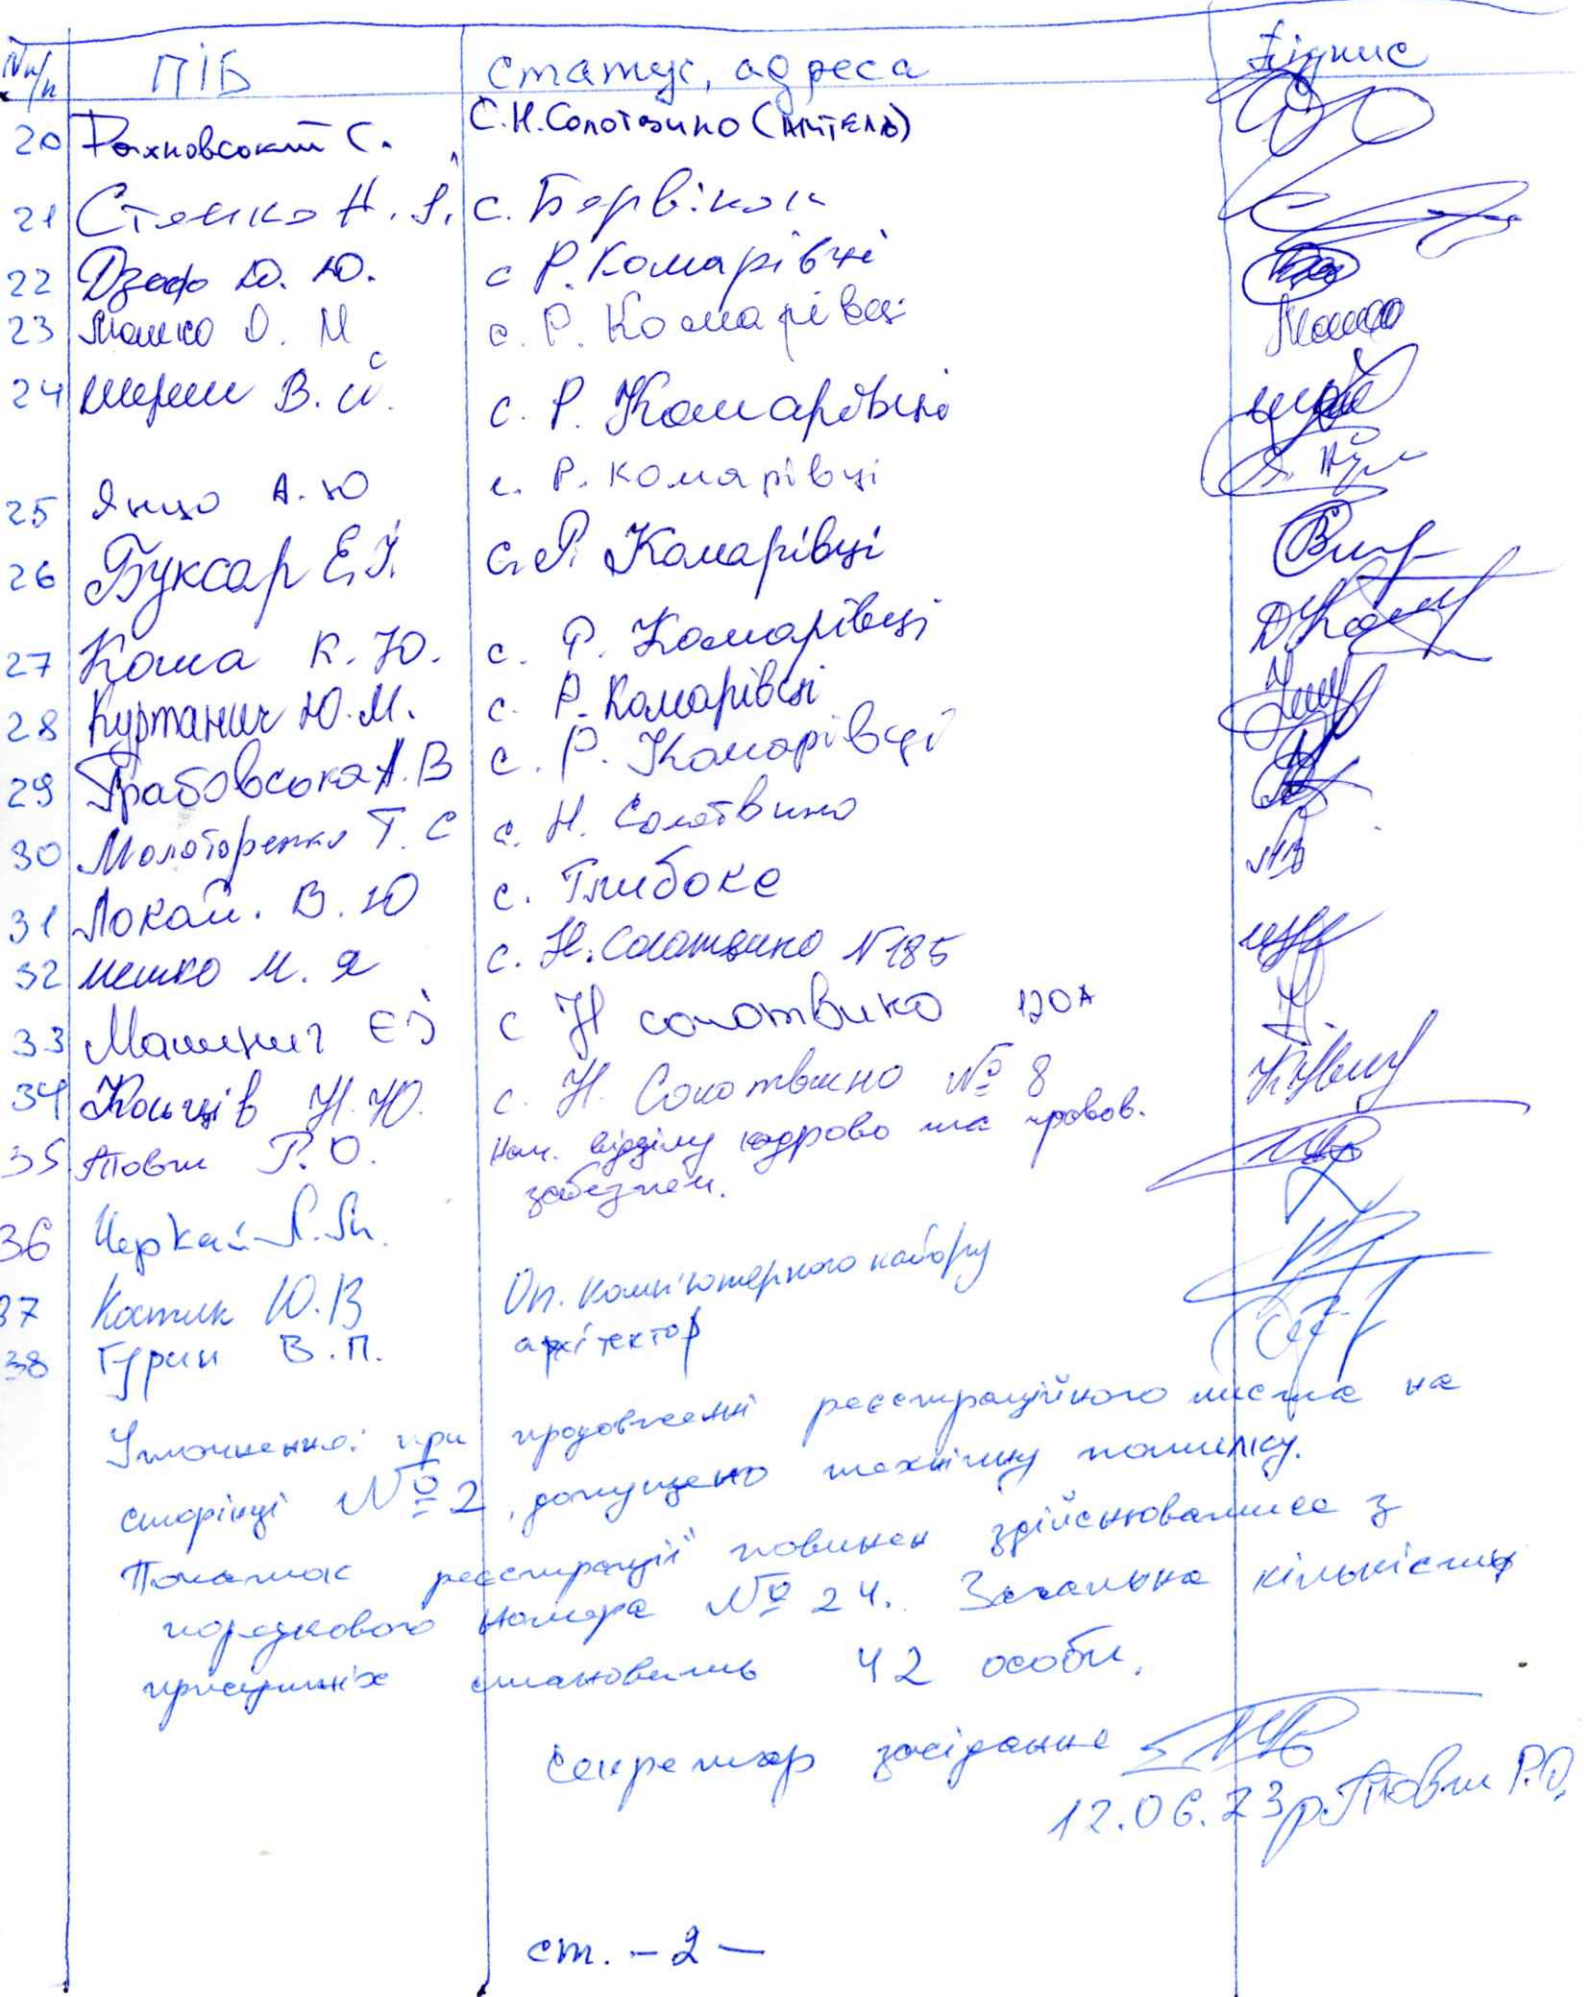 №п/п ПІБ Статус, адреса Підпис
20 Рахновський С. С.Н.Солотвино (житель)
21 Стешко Н. І. с.
22 Дзефо Ю. Ю. с Р. Комарівці
23 Машко О. М с. Р. Комарівці
24 Шереш В. Й. с. Р. Комарівці
25 Янцо А. Ю с. Р. Комарівці
26 Буксар Е. І. с. Р. Комарівці
27 Коша К. Ю. с. Р. Комарівці
28 Куртанич Ю. М. с. Р. Комарівці
29 Грабовська А. В с. Р. Комарівці
30 Молоторенко Т. С с. Н. Солотвино
31 Локай. В. Ю с. Глибоке
32 Мешко М. Я с. Н. Солотвино N 185
33 Машкич Є с Н солотвино 120А
34 Кольців Н. Ю. с. Н. Солотвино № 8
35 Товт Р. О. Нач. відділу кадрово та правов.
забезпеч.
36 Черкай
37 Костик Ю. В Оп. комп'ютерного набору
38 Гурин В. П. архітектор
Уточнення: при продовженні реєстраційного листа на
сторінці № 2, допущено технічну помилку.
Початок реєстрації повинен здійснюватися з
порядкового номера № 24. Загальна кількість
присутніх становить 42 особи.
Секретар засідання
12.06.23р. Товт Р.О.
ст. - 2 -